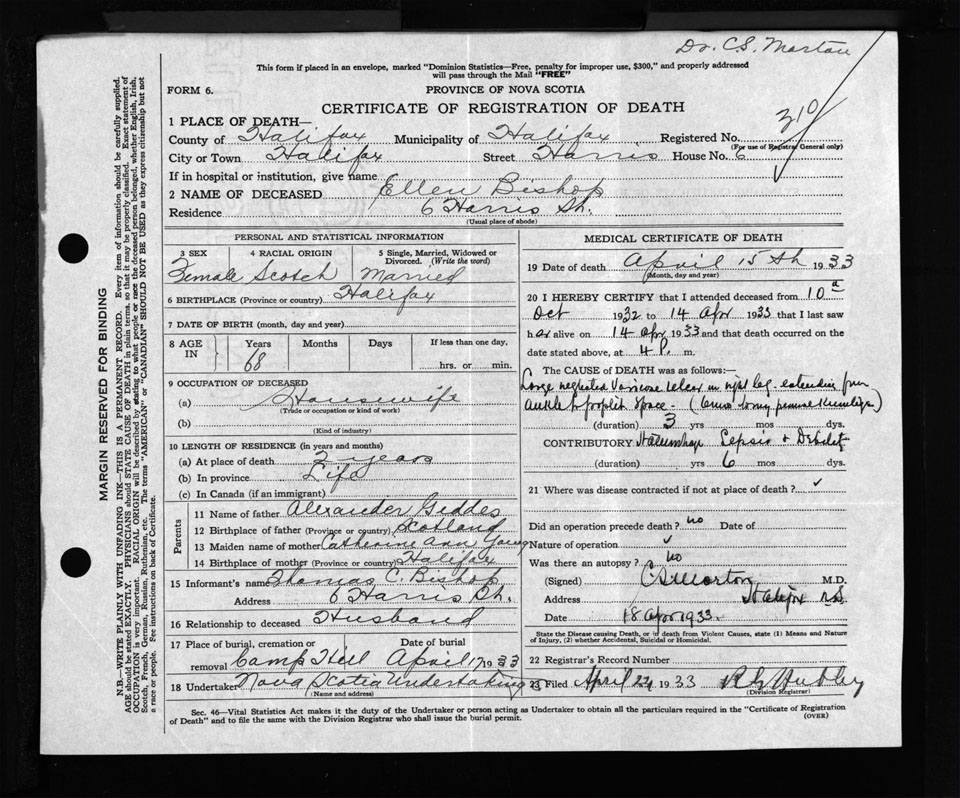 Dr. C.S. Morton
This form if placed in an envelope, marked "Dominion Statistics—Free, penalty for improper use, $300," and properly addressed
will pass through the Mail "FREE"
FORM 6.
PROVINCE OF NOVA SCOTIA
CERTIFICATE OF REGISTRATION OF DEATH
310
1 PLACE OF DEATH—
County of Halifax Municipality of Halifax Registered No.
(For use of Registrar General only)
City or Town Halifax Street Harris House No. 6
If in hospital or institution, give name
2 NAME OF DECEASED Ellen Bishop
Residence 6 Harris St.
(Usual place of abode)
PERSONAL AND STATISTICAL INFORMATION
3 SEX 4 RACIAL ORIGIN 5 Single, Married, Widowed or Divorced. (Write the word)
Female Scotch Married
6 BIRTHPLACE (Province or country) Halifax
7 DATE OF BIRTH (month, day and year)
8 AGE IN Years Months Days If less than one day,
68 hrs. or min.
9 OCCUPATION OF DECEASED
(a) Housewife
(Trade or occupation or kind of work)
(b)
(Kind of industry)
10 LENGTH OF RESIDENCE (in years and months)
(a) At place of death 2 years
(b) In province Life
(c) In Canada (if an immigrant)
Parents
11 Name of father Alexander Geddes
12 Birthplace of father (Province or country) Scotland
13 Maiden name of mother Catherine Ann Young
14 Birthplace of mother (Province or country) Halifax
15 Informant's name Thomas C. Bishop
Address 6 Harris St.
16 Relationship to deceased Husband
17 Place of burial, cremation or removal Date of burial
Camp Hill April 17 1933
18 Undertaker Nova Scotia Undertaking
(Name and address)
MEDICAL CERTIFICATE OF DEATH
19 Date of death April 15th 1933
(Month, day and year)
20 I HEREBY CERTIFY that I attended deceased from 10
Oct 1932 to 14 Apr 1933 that I last saw
her alive on 14 Apr 1933 and that death occurred on the
date stated above, at 4 P. m.
The CAUSE OF DEATH was as follows:—
Large neglected Varicose ulcer on right leg extending from
Ankle to popliteal space - (
(duration) 3 yrs mos dys.
CONTRIBUTORY Sepsis & Debility
(duration) yrs 6 mos dys.
21 Where was disease contracted if not at place of death?
Did an operation precede death? no Date of
Nature of operation
Was there an autopsy? no
(Signed) C S Morton M.D.
Address Halifax N.S.
Date 18 Apr 1933
State the Disease causing Death, or in death from Violent Causes, state (1) Means and Nature
of Injury, (2) whether Accidental, Suicidal or Homicidal.
22 Registrar's Record Number
23 Filed April 24 1933
(Division Registrar)
Sec. 46—Vital Statistics Act makes it the duty of the Undertaker or person acting as Undertaker to obtain all the particulars required in the "Certificate of Registration
of Death" and to file the same with the Division Registrar who shall issue the burial permit.
(OVER)
MARGIN RESERVED FOR BINDING
N.B.—WRITE PLAINLY WITH UNFADING INK—THIS IS A PERMANENT RECORD. Every item of information should be carefully supplied.
AGE should be stated EXACTLY. PHYSICIANS should STATE CAUSE OF DEATH in plain terms, so that it may be properly classified. Exact statement of
OCCUPATION is very important. RACIAL ORIGIN will be described by stating to what people or race the deceased person belonged, whether English, Irish,
Scotch, French, German, Russian, Ruthenian, etc. The terms "AMERICAN" or "CANADIAN" SHOULD NOT BE USED as they express citizenship but not
a race or people. See instructions on back of Certificate.